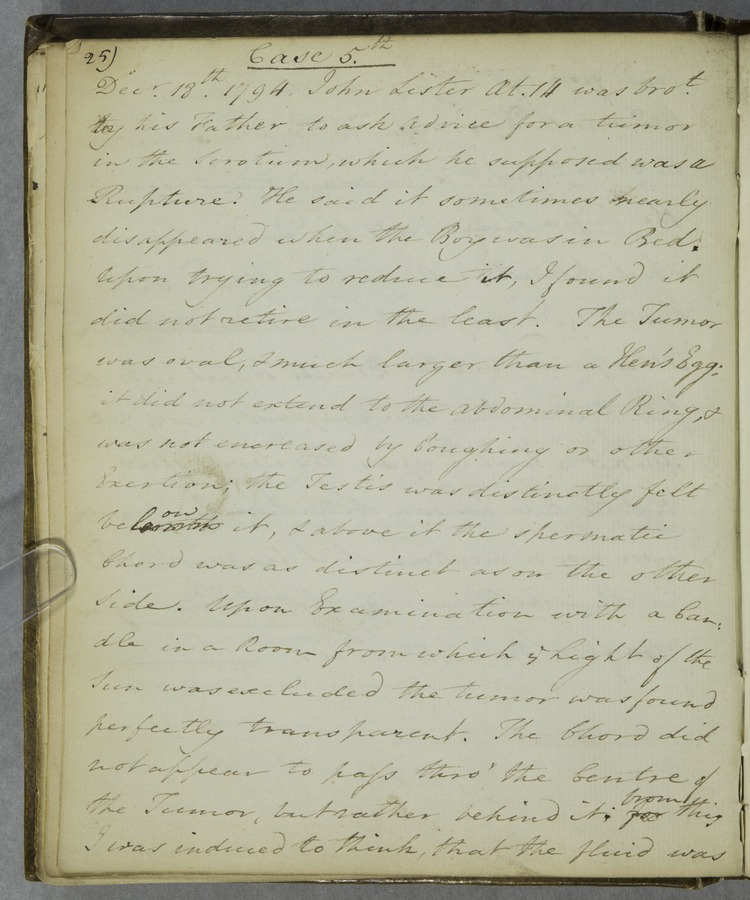 25)
Case 5.th
Decr. 18th. 1794. John Lister Æt. 14 was brot.
by his Father to ask advice for a tumor
in the Scrotum, which he supposed was a
Rupture. He said it sometimes nearly
disappeared when the Boy was in Bed.
Upon trying to reduce it, I found it
did not retire in the least. The Tumor
was oval, & much larger than a Hen's Egg;
it did not extend to the abdominal Ring, &
was not encreased by Coughing or other
Exertion; the Testis was distinctly felt
below it, & above it the spermatic
Chord was as distinct as on the other
side. Upon Examination with a Can:
dle in a Room from which ye Light of the
Sun was excluded the tumor was found
perfectly transparent. The Chord did
not appear to pass thro' the Centre of
the Tumor, but rather behind it. from this
I was induced to think, that the fluid was